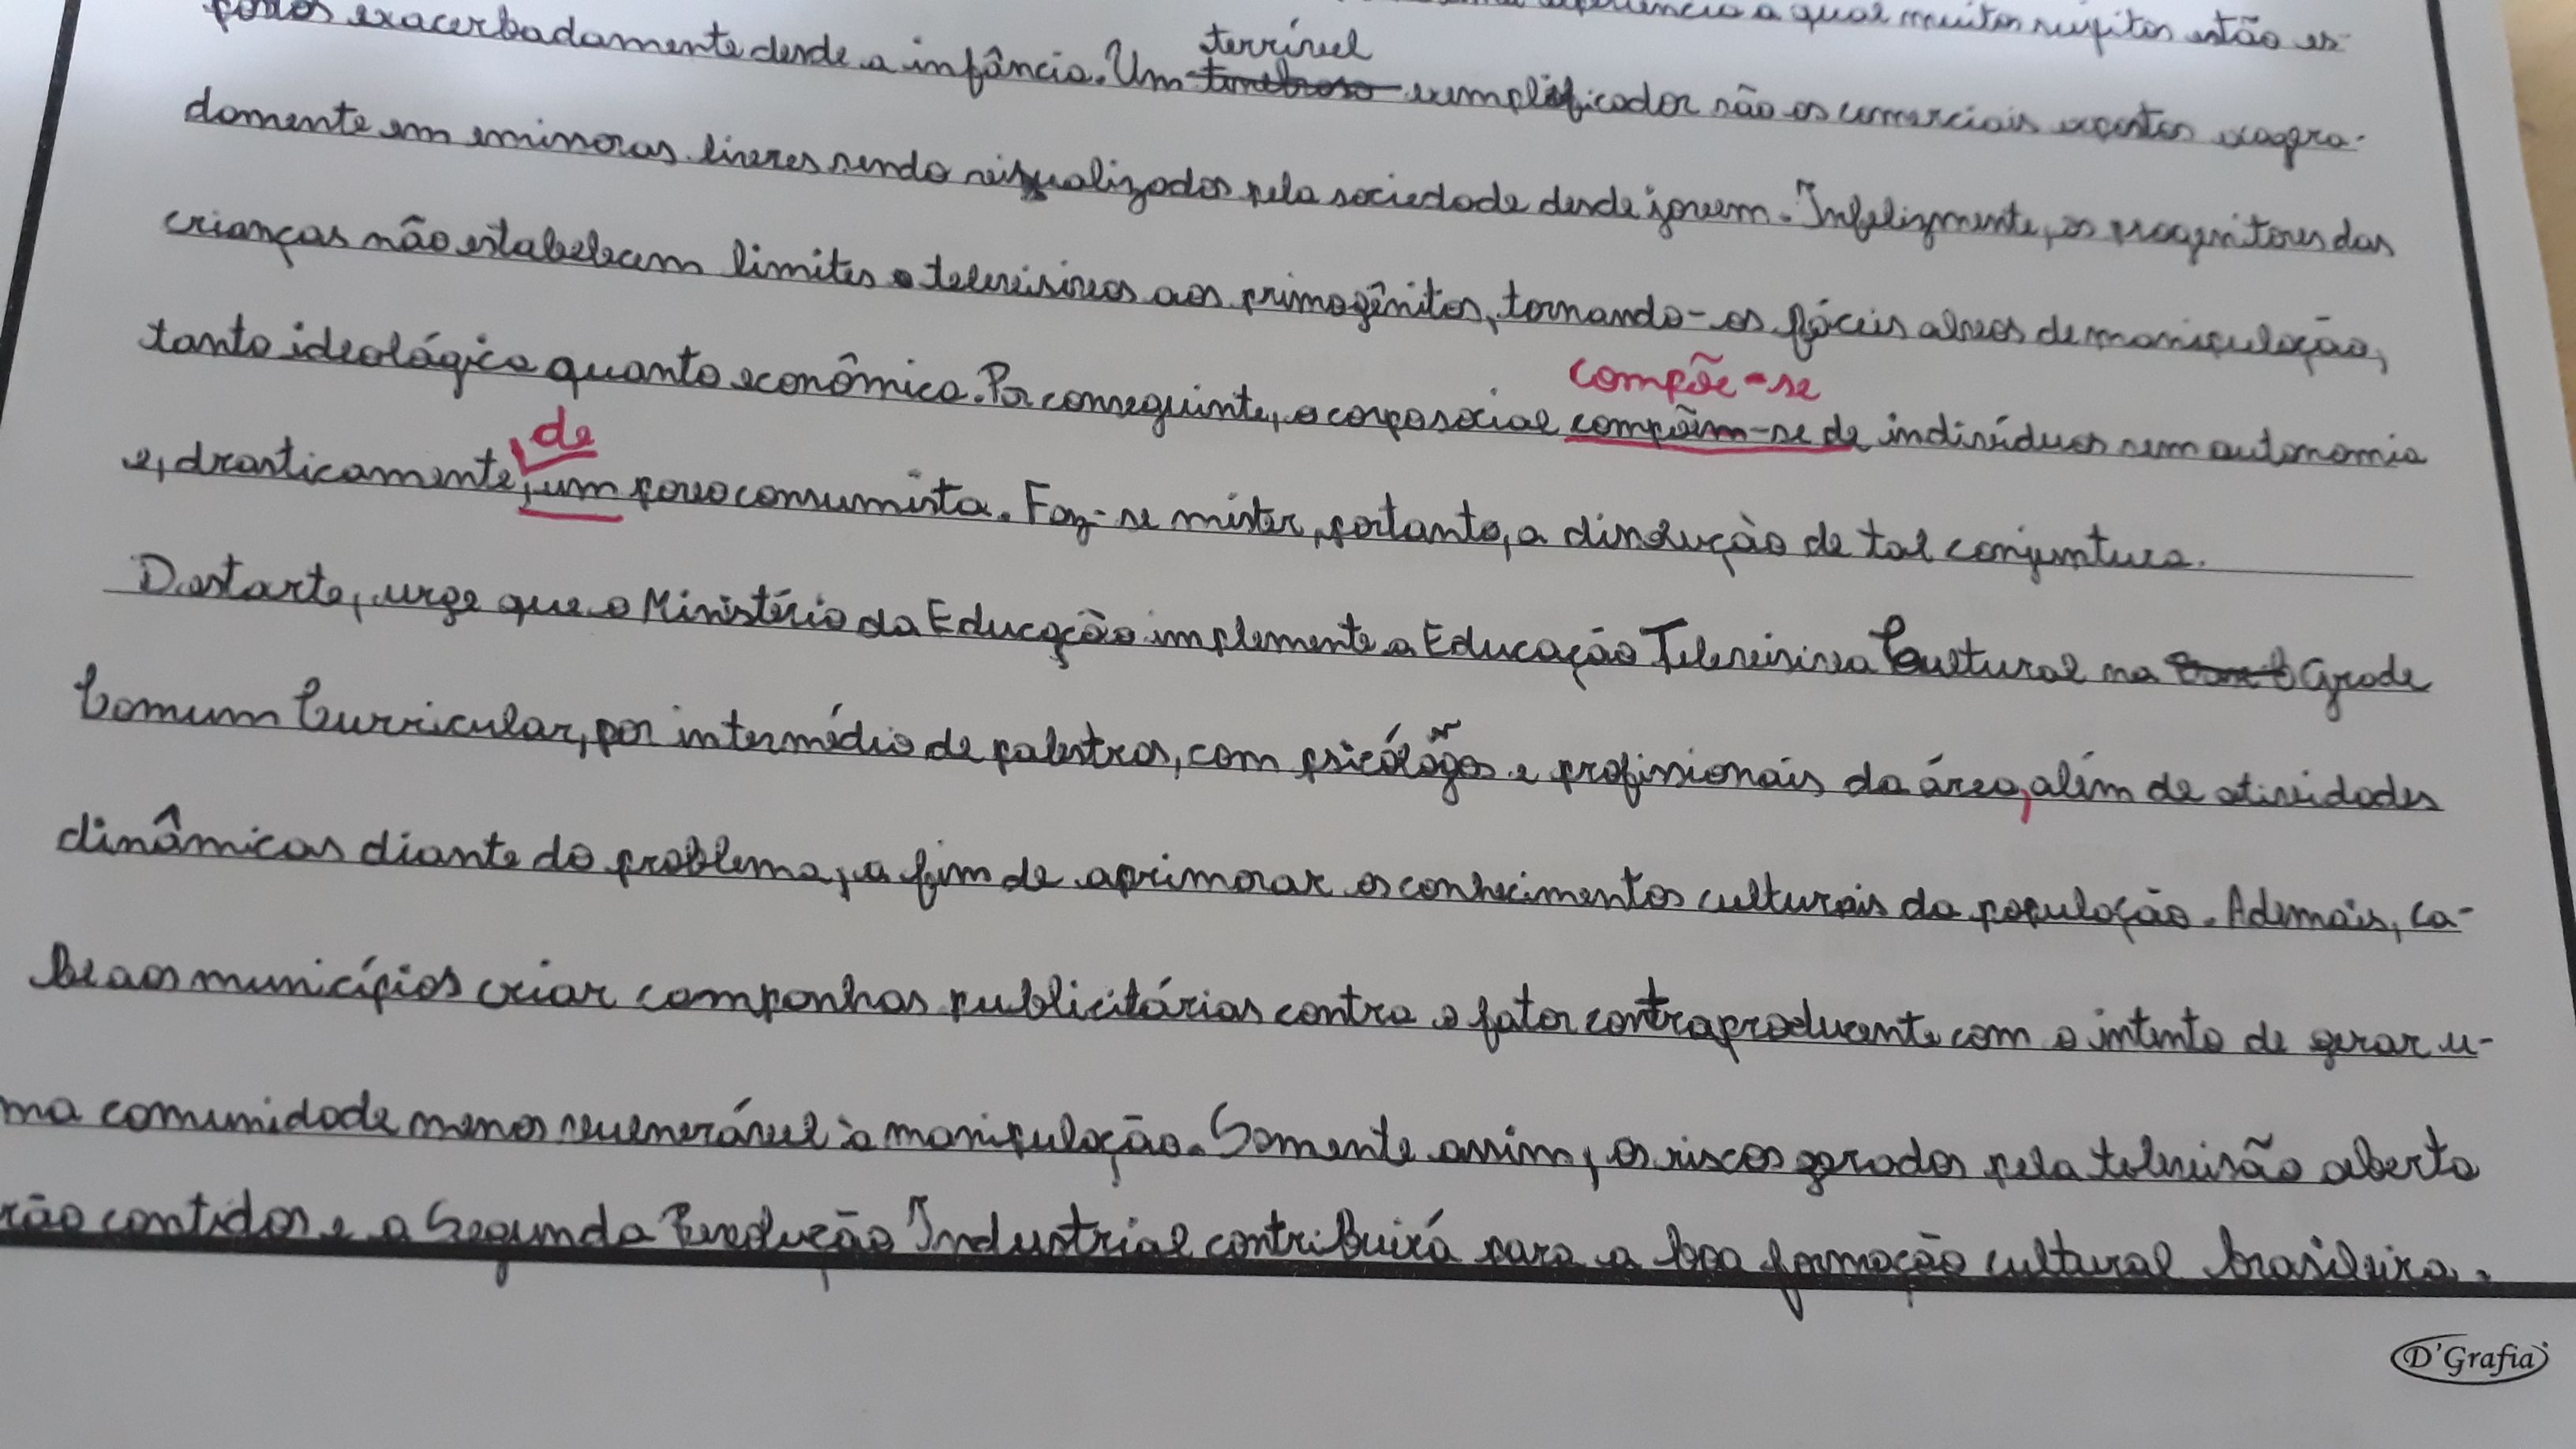 experiência a qual muitos sujeitos estão ex-
postos exacerbadamente desde a infância. Um terrível exemplificador são os comerciais expostos exagera-
damente em emissoras livres sendo visualizados pela sociedade desde jovem. Infelizmente, os progenitores das
crianças não estabelecem limites televisivos aos primogênitos, tornando-os fáceis alvos de manipulação,
compõe-se
tanto ideológica quanto econômica. Por conseguinte, o corpo social compõem-se de indivíduos sem autonomia
de
e, drasticamente, um povo consumista. Faz-se mister, portanto, a dissolução de tal conjuntura.
Destarte, urge que o Ministério da Educação implemente a Educação Televisiva Cultural na Grade
Comum Curricular, por intermédio de palestras, com psicólogos e profissionais da área, além de atividades
dinâmicas diante do problema, a fim de aprimorar os conhecimentos culturais da população. Ademais, ca-
be aos municípios criar campanhas publicitárias contra o fator contraproducente com o intento de gerar u-
ma comunidade menos vulnerável à manipulação. Somente assim, os riscos gerados pela televisão aberta
rão contidos e a Segunda Revolução Industrial contribuirá para a boa formação cultural brasileira.
D'Grafia